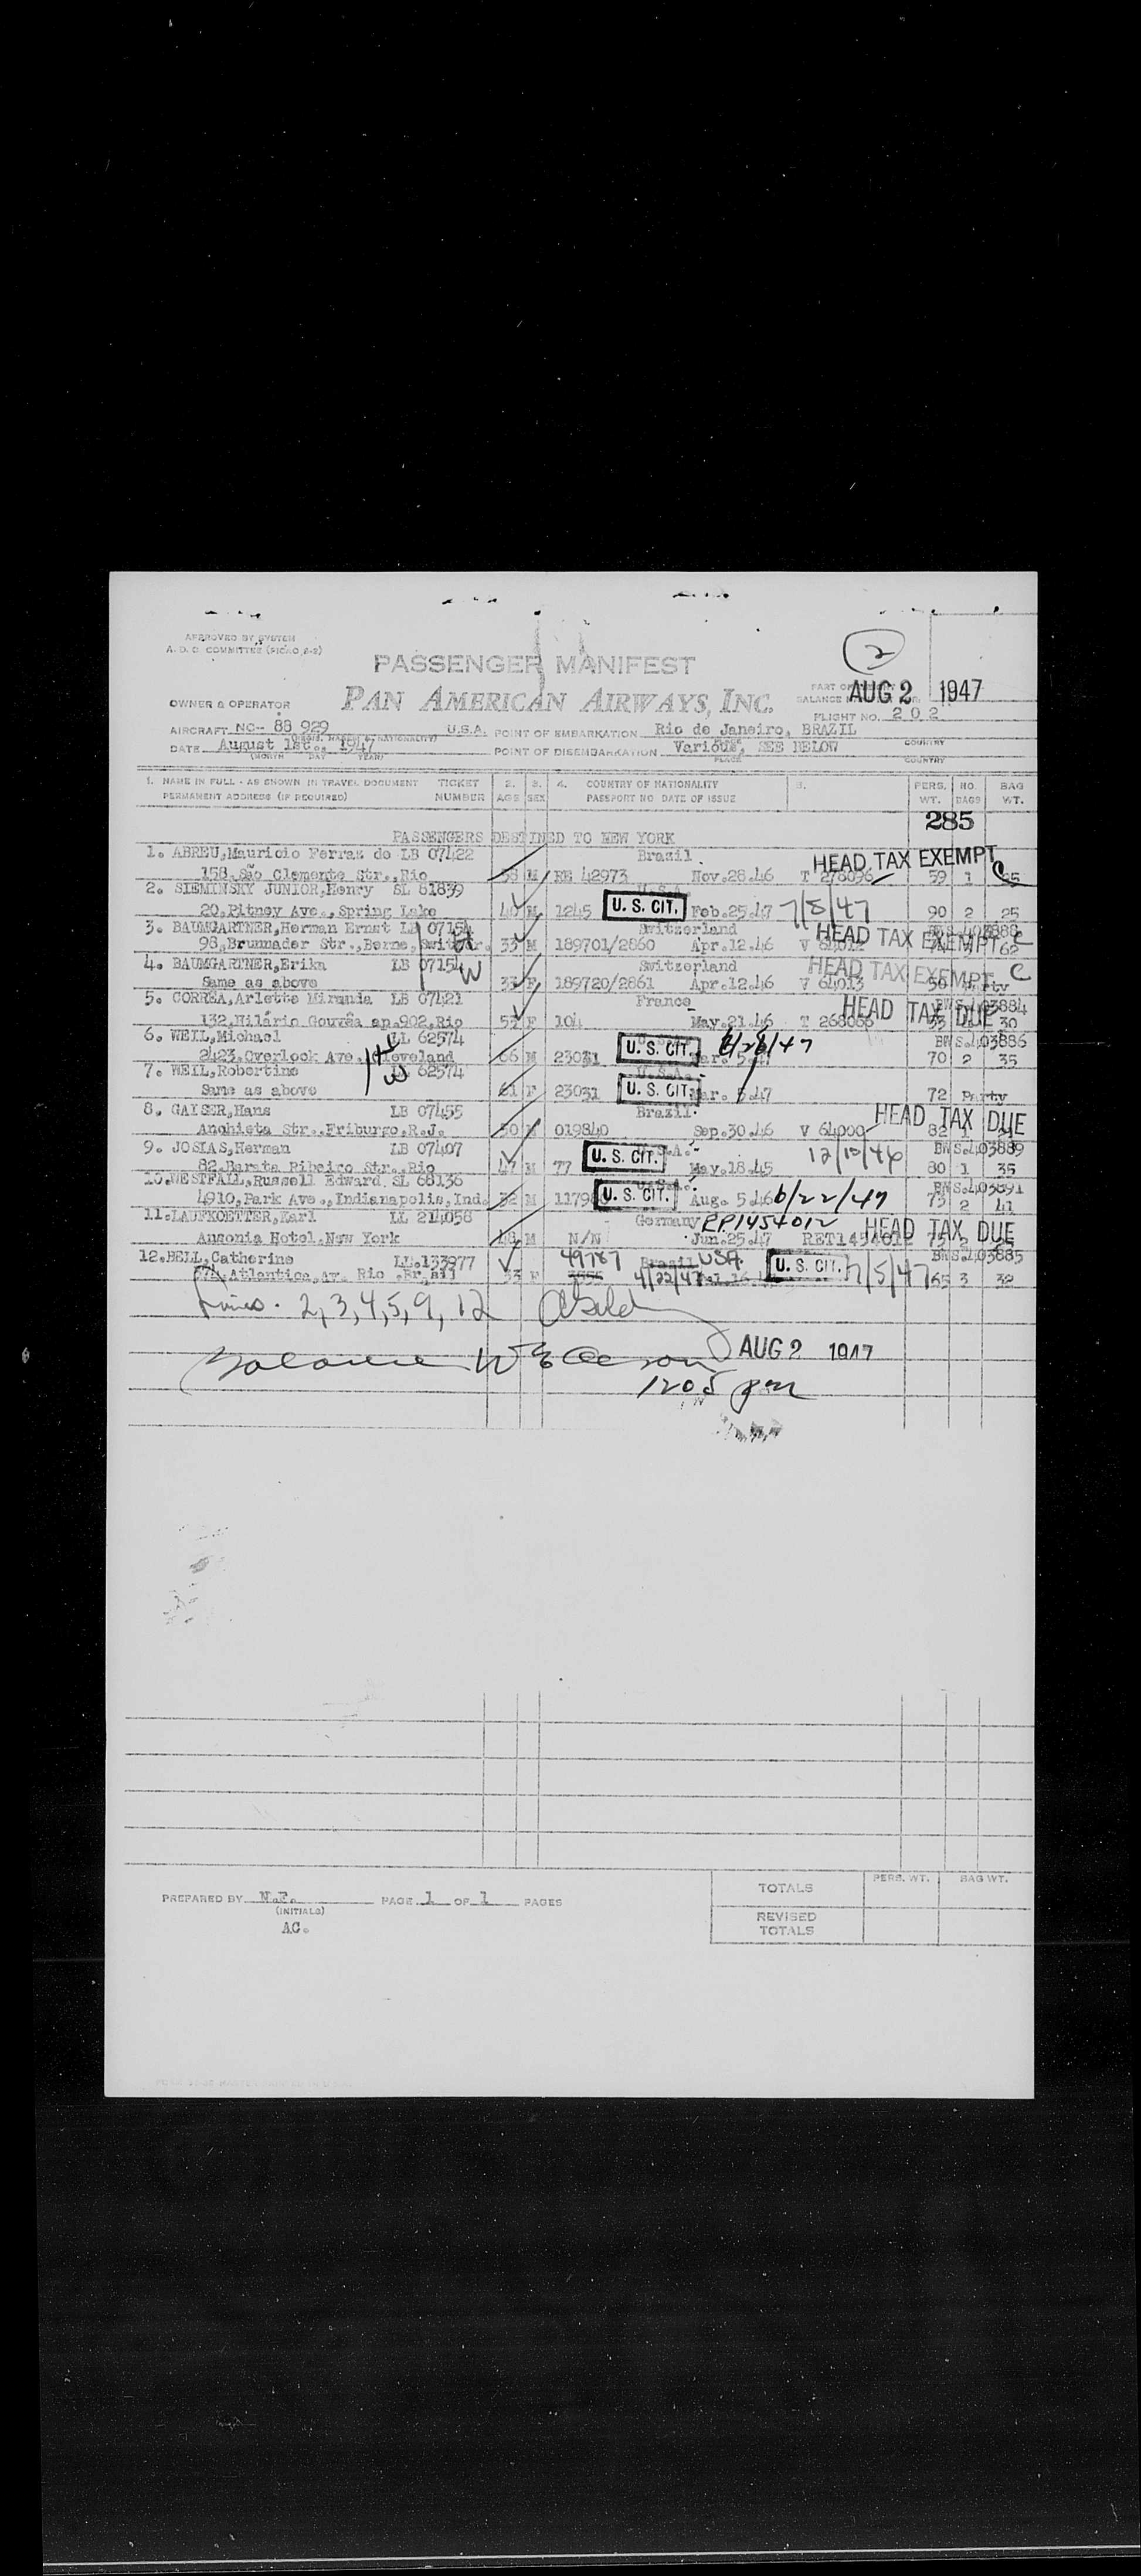 2
APPROVED BY SYSTEM
A. D. C. COMMITTEE (PICAO, 6-2)
PASSENGER MANIFEST
PAN AMERICAN AIRWAYS, INC.
AUG 2 1947
OWNER & OPERATOR
FLIGHT NO. 202
AIRCRAFT NC- 88 929 U.S.A. POINT OF EMBARKATION Rio de Janeiro, BRAZIL
DATE August 1st., 1947 POINT OF DISEMBARKATION Various, SEE BELOW
(MONTH DAY YEAR) PLACE COUNTRY
1. NAME IN FULL - AS SHOWN IN TRAVEL DOCUMENT TICKET 2. 3. 4. COUNTRY OF NATIONALITY 5. PERS. NO. BAG
PERMANENT ADDRESS (IF REQUIRED) NUMBER AGE SEX PASSPORT NO DATE OF ISSUE WT. BAGS WT.
285
PASSENGERS DESTINED TO NEW YORK
1. ABREU, Mauricio Ferraz de LB 07422 Brazil HEAD TAX EXEMPT C
158, São Clemente Str., Rio 58 M RE 42973 Nov.28.46 T 276096 59 1
2. SIEMINSKY JUNIOR, Henry SL 81839 U.S.A.
20, Pitney Ave., Spring Lake 40 M 1245 U. S. CIT. Feb.25.47 7/8/47 90 2 25
3. BAUMGARTNER, Herman Ernst LB 07154 Switzerland HEAD TAX EXEMPT C
98, Brunnader Str., Berne, 33 M 189701/2860 Apr.12.46 62
4. BAUMGARTNER, Erika LB 07154 W Switzerland HEAD TAX EXEMPT C
Same as above 33 F 189720/2861 Apr.12.46 V 64013 50 Party
5. CORRÊA, Arlette Miranda LB 07421 France HEAD TAX DUE BWS.403884
132, Hilário Gouvêa ap.902, Rio F 104 May.21.46 T 268066 30
6. WEIL, Michael LL 62574 H U. S. CIT. BWS.403886
2423, Overlook Ave., Cleveland 66 M 23031 70 2 35
7. WEIL, Robertine LL 62574 W U.S.A.
Same as above 61 F 23031 U. S. CIT. Mar. 5.47 72 Party
8. GAISER, Hans LB 07455 Brazil HEAD TAX DUE
Anchieta Str., Friburgo, R.J. 50 M 019840 Sep.30.46 V 64000 82
9. JOSIAS, Herman LB 07407 U. S. CIT. 12/10/46 BWS.403889
82, Barata Ribeiro Str., Rio 47 M 77 May.18.45 80 1 35
10. WESTFALL, Russell Edward SL 68136 U. S. CIT. BWS.403891
4910, Park Ave., Indianapolis, Ind. 52 M Aug. 5.46 6/22/47 73 2 41
11. LAUFKOETTER, Karl LL 214058 Germany RP1454012 HEAD TAX DUE
Ansonia Hotel, New York 48 M N/N Jun.25.47 2
12. BELL, Catherine LL.133977 49787 Brazil USA U. S. CIT. BWS.403885
Atlantica, Av. Rio, Brazil 33 F 4/22/47 7/5/47 65 3 32
Lines. 2, 3, 4, 5, 9, 12
AUG 2 1947
Balance
1205 pm
TOTALS PERS. WT. BAG WT.
PREPARED BY N.F. PAGE 1 OF 1 PAGES
(INITIALS)
AC.
REVISED
TOTALS